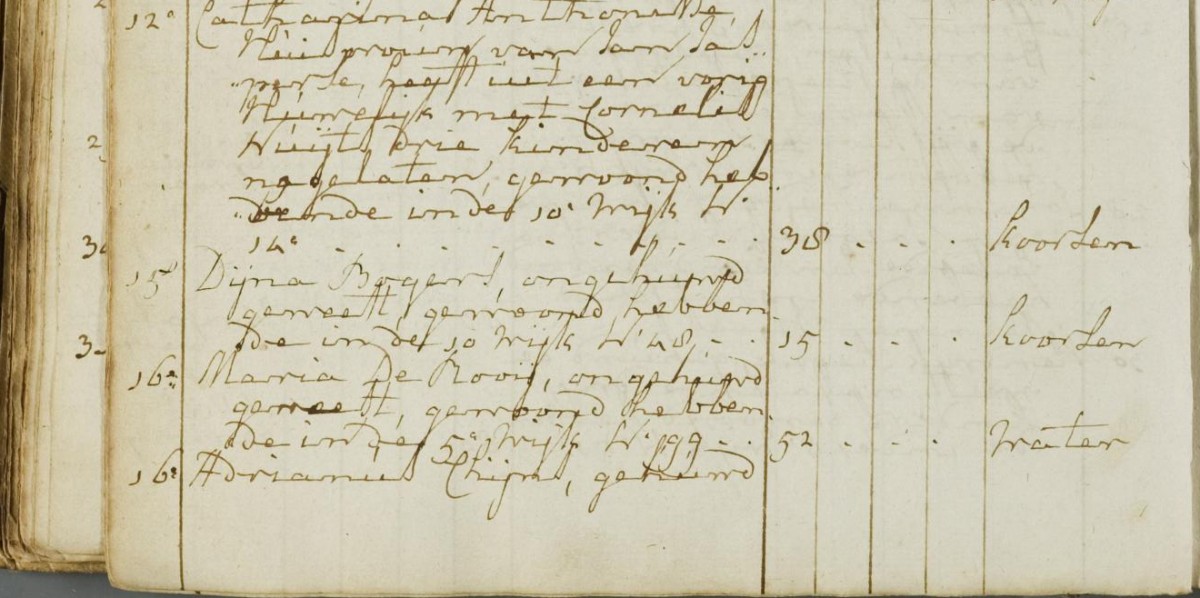 12e Catharina Anthonisse,
Huisvrouw van Jan Jas„
„perse, heeft uit een vorig
Huwelijk met Cornelis
Nuijt, drie kinderen
nagelaten, gewoond heb„
„bende in de 10e Wijk N.
14e . . . . . . . 38 . . . koorsen
15e Dijna Bogers, ongehuwd
geweest, gewoond hebben„
de in de 10 Wijk N. 48, . . 15 . . . koorsen
16e Maria De Rooij, ongehuwd
geweest, gewoond hebben„
de in de 5e Wijk N. 199 . . 52 . . . water
16e Adrianus Chijn, gehuwd